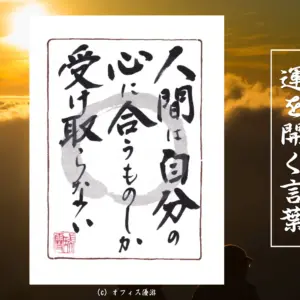 人間は自分の
心に合うものしか
受け取らない
運を開く言葉
(c) オフィス湧沼